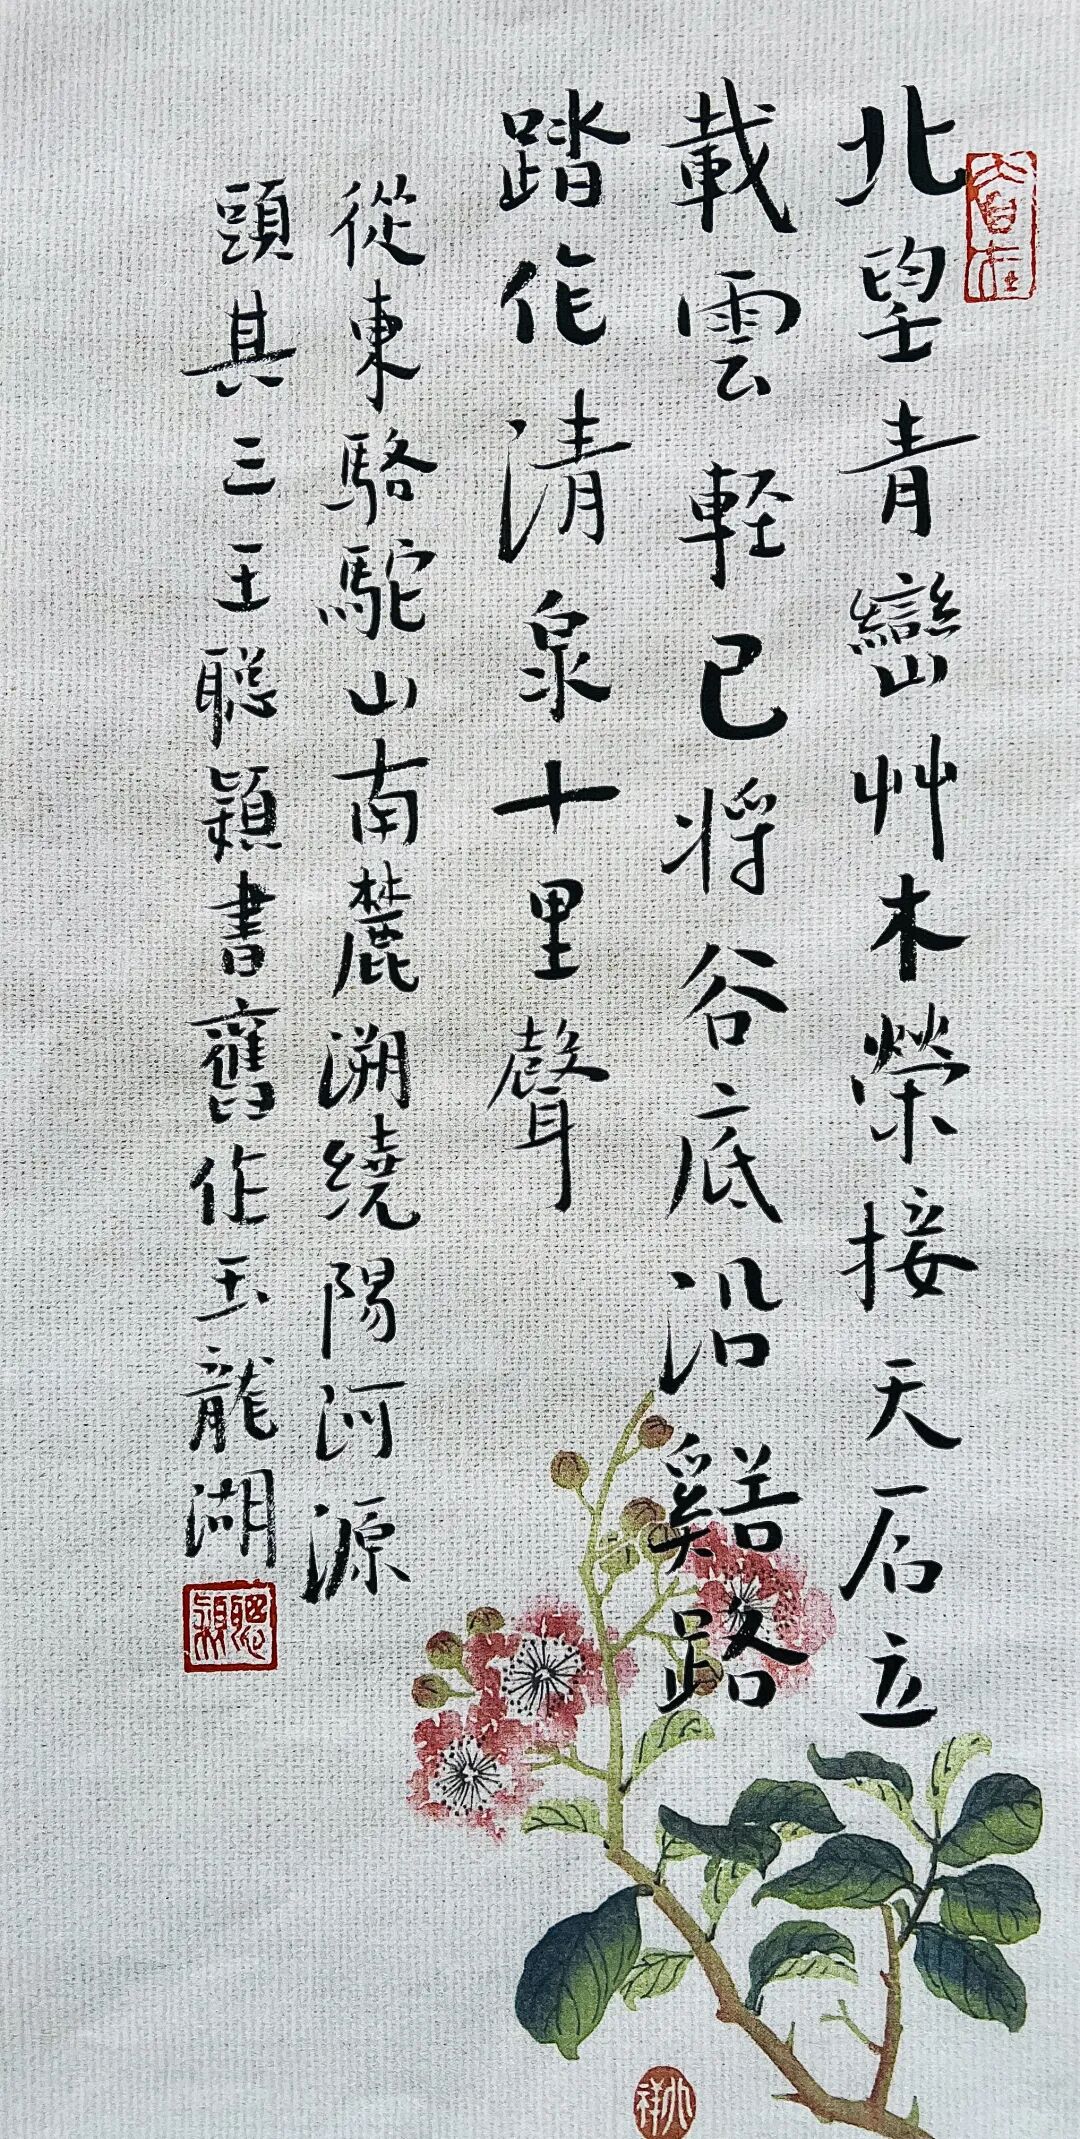 北望青巒艸木榮接天石立
載雲軽已将谷底沿谿路
踏作清泉十里聲
從東駱駝山南麓溯繞陽河源
頭其三王聰穎書舊作玉龍湖
大自在
聰穎